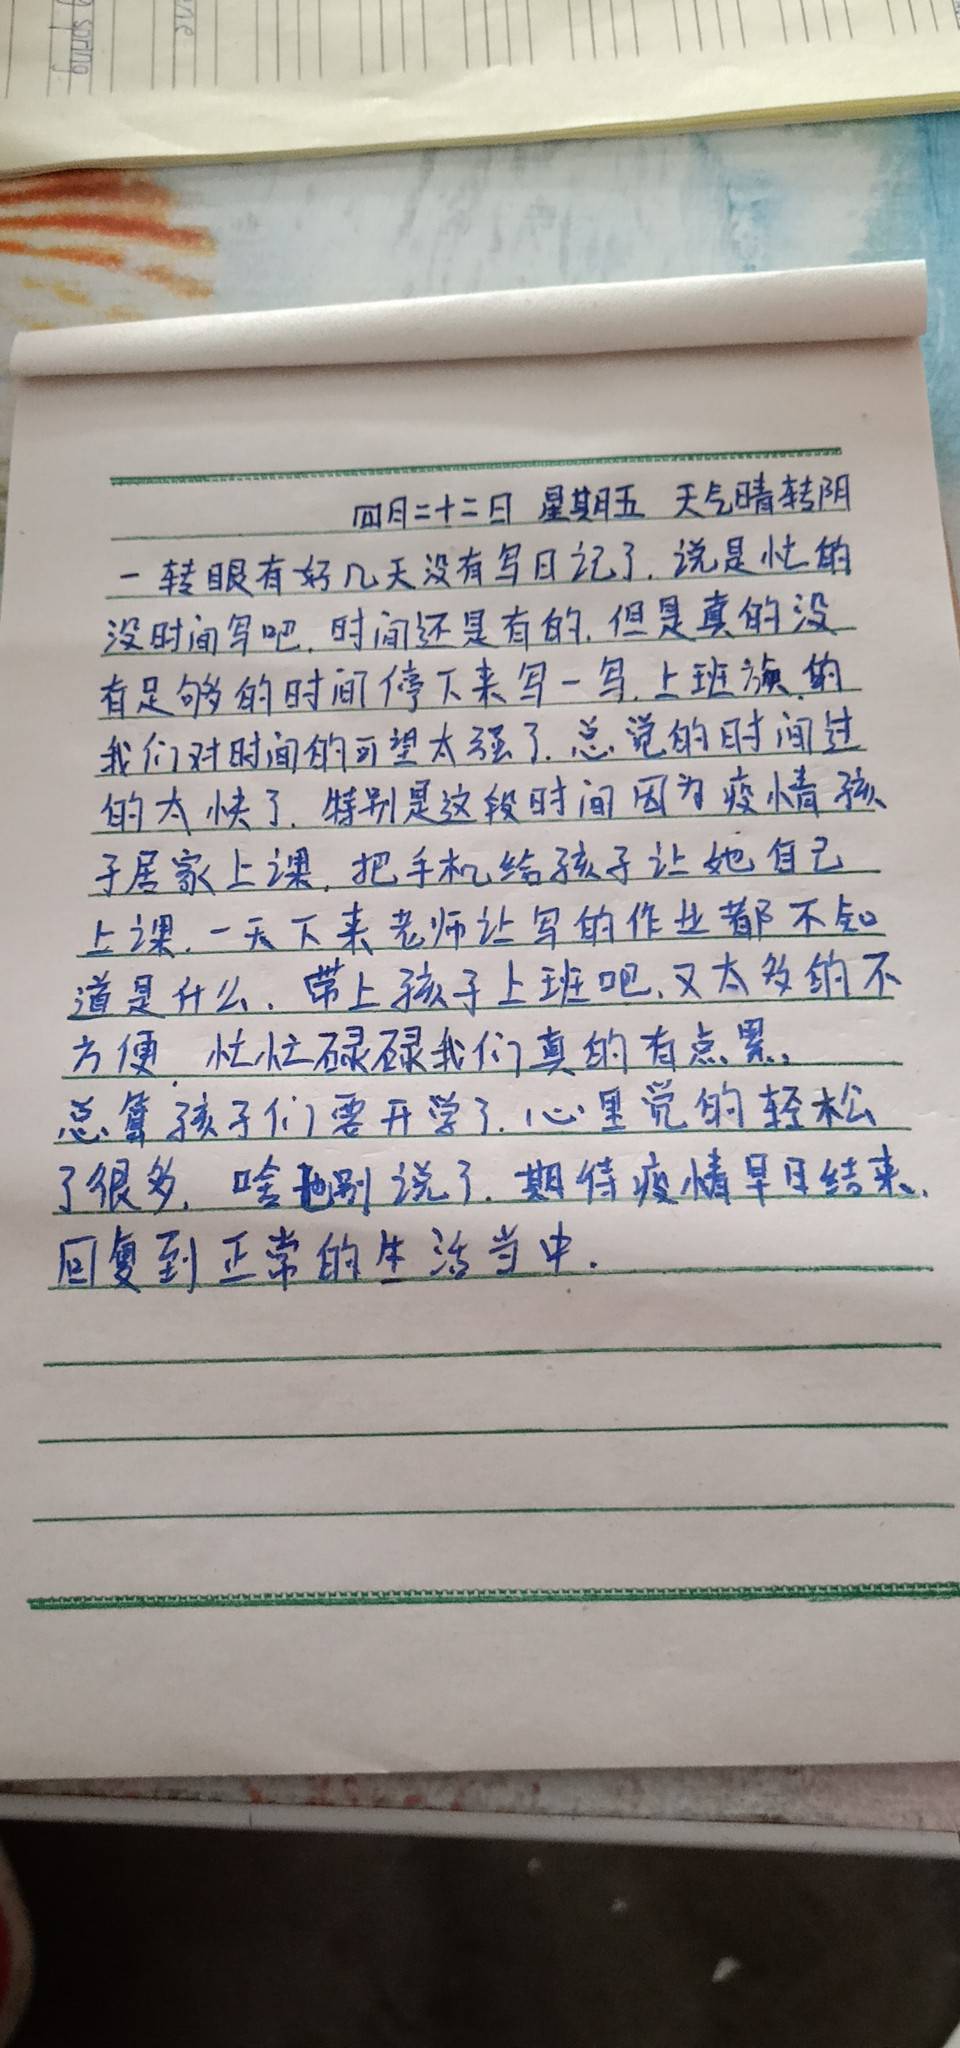 spring
四月二十二日 星期五 天气晴转阴
一转眼有好几天没有写日记了.说是忙的
没时间写吧.时间还是有的.但是真的没
有足够的时间停下来写一写.上班族的
我们对时间的可望太强了.总觉的时间过
的太快了.特别是这段时间因为疫情孩
子居家上课.把手机给孩子让她自己
上课.一天下来老师让写的作业都不知
道是什么.带上孩子上班吧.又太多的不
方便.忙忙碌碌我们真的有点累.
总算孩子们要开学了.心里觉的轻松
了很多.啥也别说了.期待疫情早日结束.
回复到正常的生活当中.